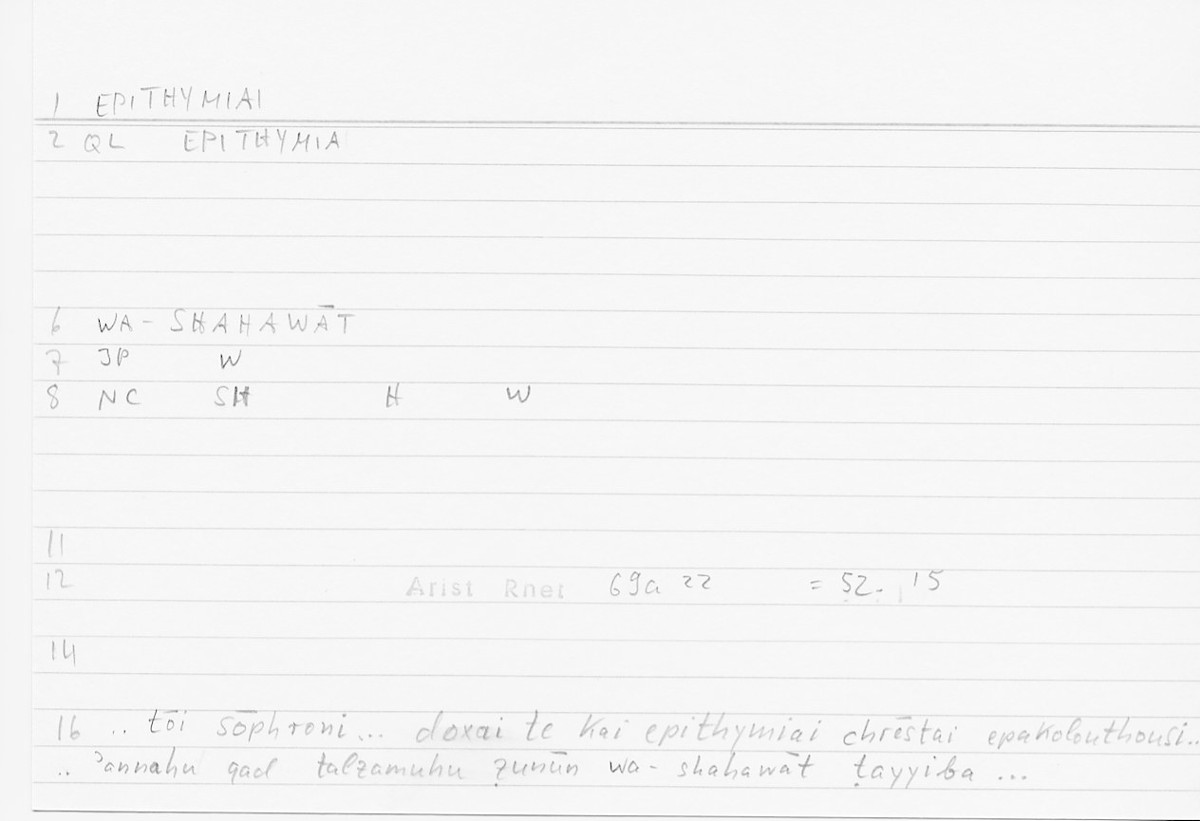 1 EPITHYMIAI
2 QL EPITHYMIA
6 WA- SHAHAWĀT
7 JP W
8 NC SH H W
11
12 Arist Rhet 69a 22 = 52. 15
14
16 .. tōi sōphroni... doxai te kai epithymiai chrēstai epakolouthousi..
.. ʾannahu qad talzamuhu ẓunūn wa- shahawāt ṭayyiba ...